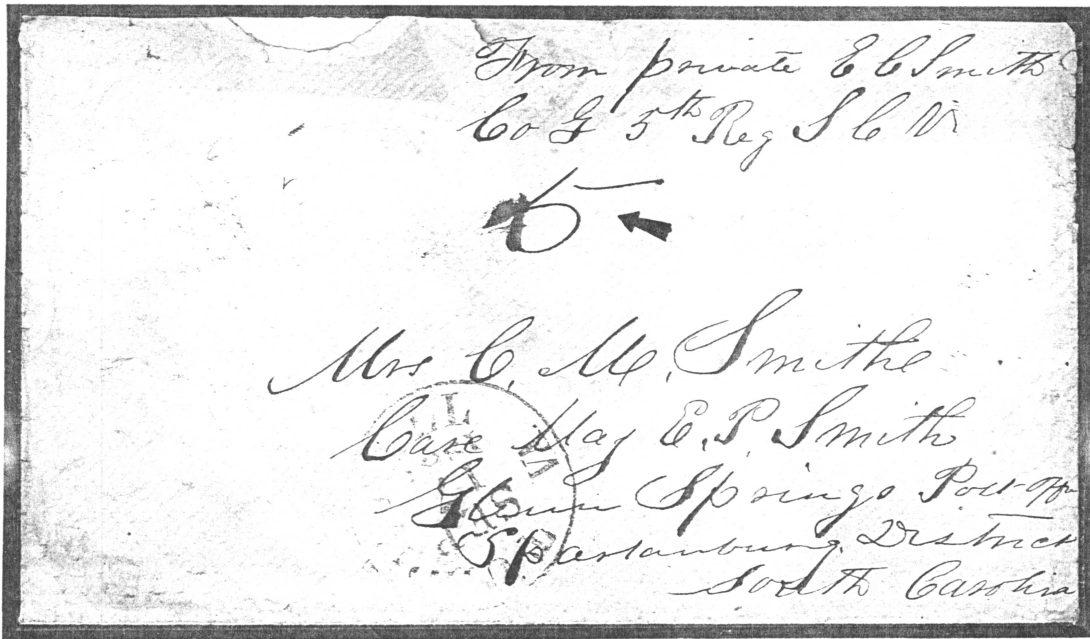 From private E C Smith
Co G 5th Reg S C V
5
Mrs C. M. Smithe
Care Maj E. P. Smith
Glenn Springs Post Off
Spartanburg District
South Carolina